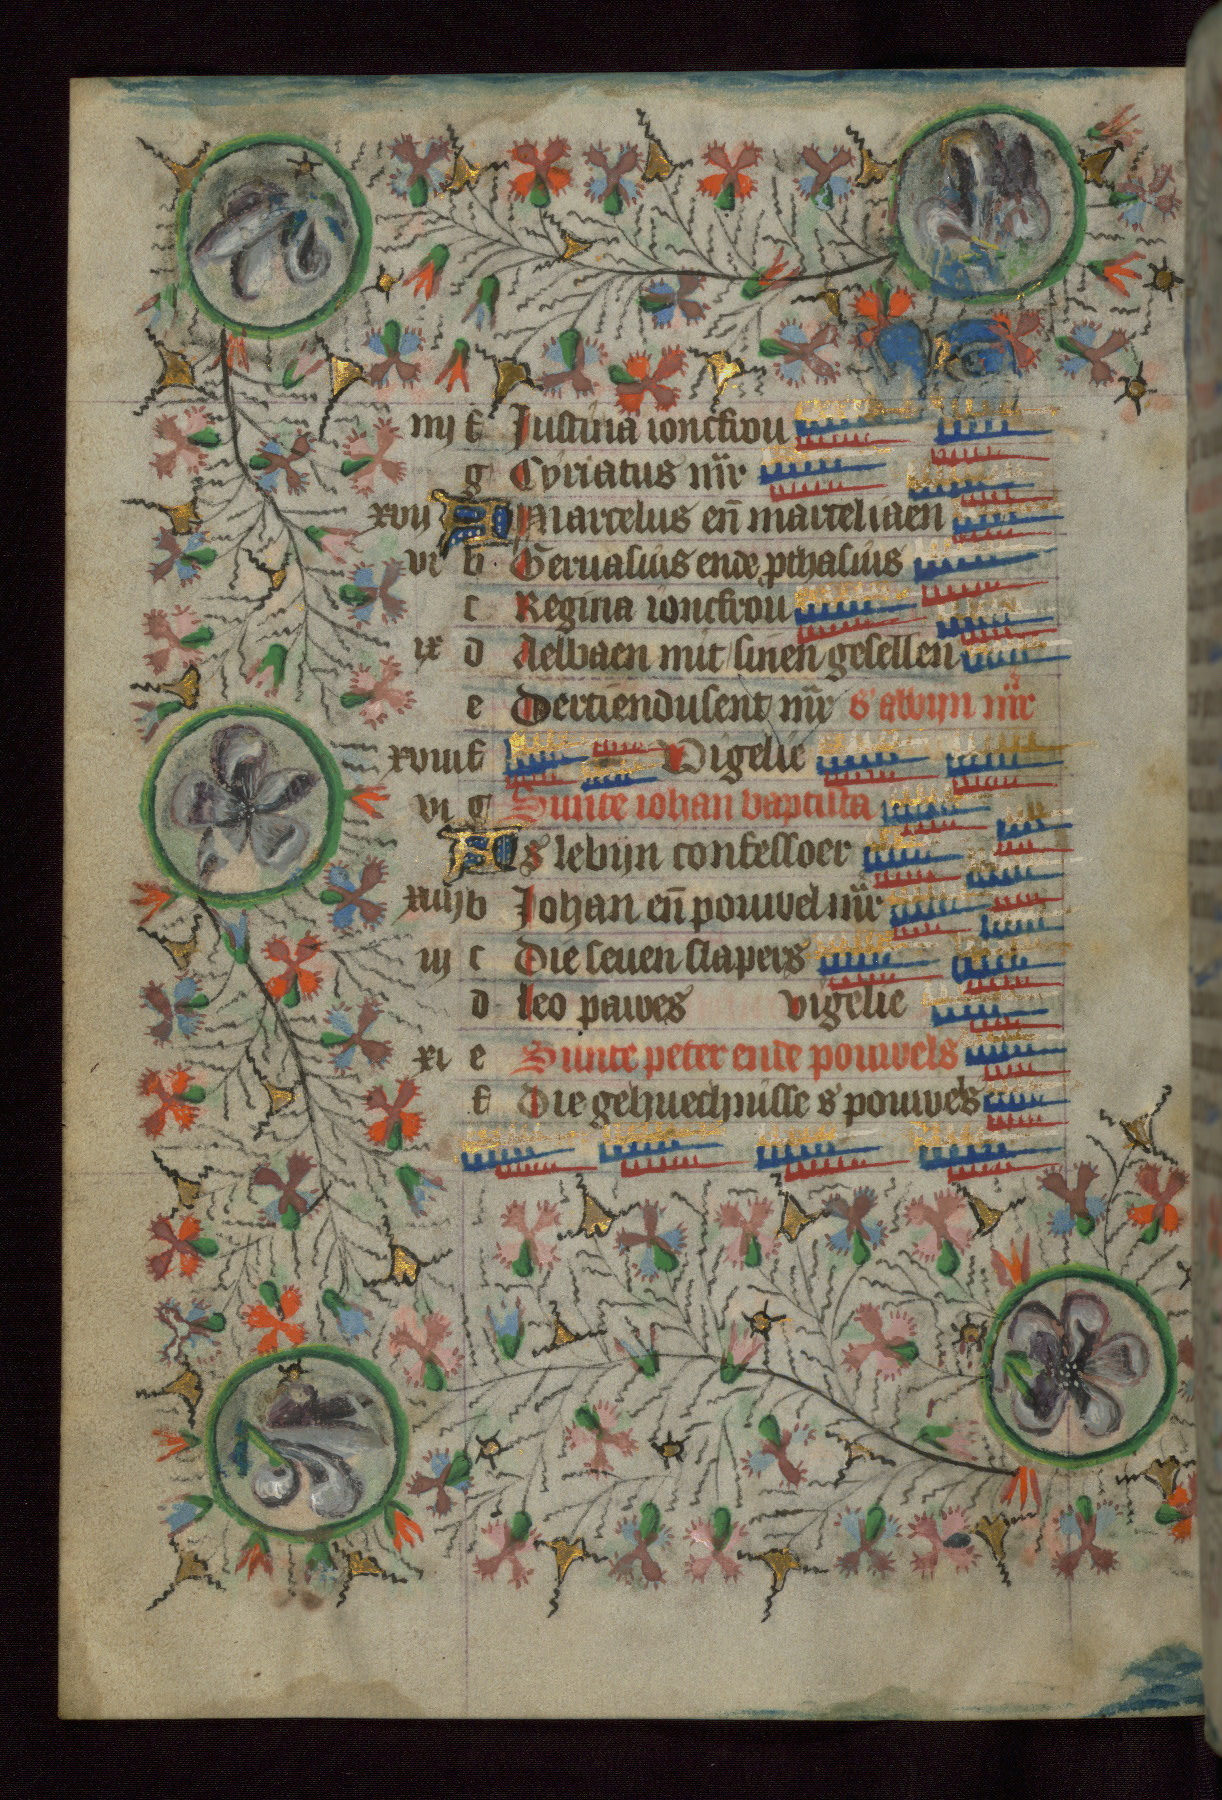 iiij f Justina ioncfrou
g Cyriacus mr̄
xvii A Marcelus en̄ marceliaen
vi b Geruasius ende pthasius
c Regina ioncfrou
ix d Aelbaen mit sinen gesellen
e Dertiendusent mr̄ s' albijn mr̄
xviii f Vigelie
vi g Sunte iohan baptista
A S lebijn confessoer
xiiij b Johan en̄ pouwel mr̄
iij c Die seuen slapers
d Leo pawes vigelie
xi e Sunte peter ende pouwels
f Die gehuechnisse s' pouwels